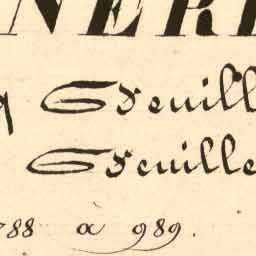 NER
Feuill
Feuille
788 a 989.